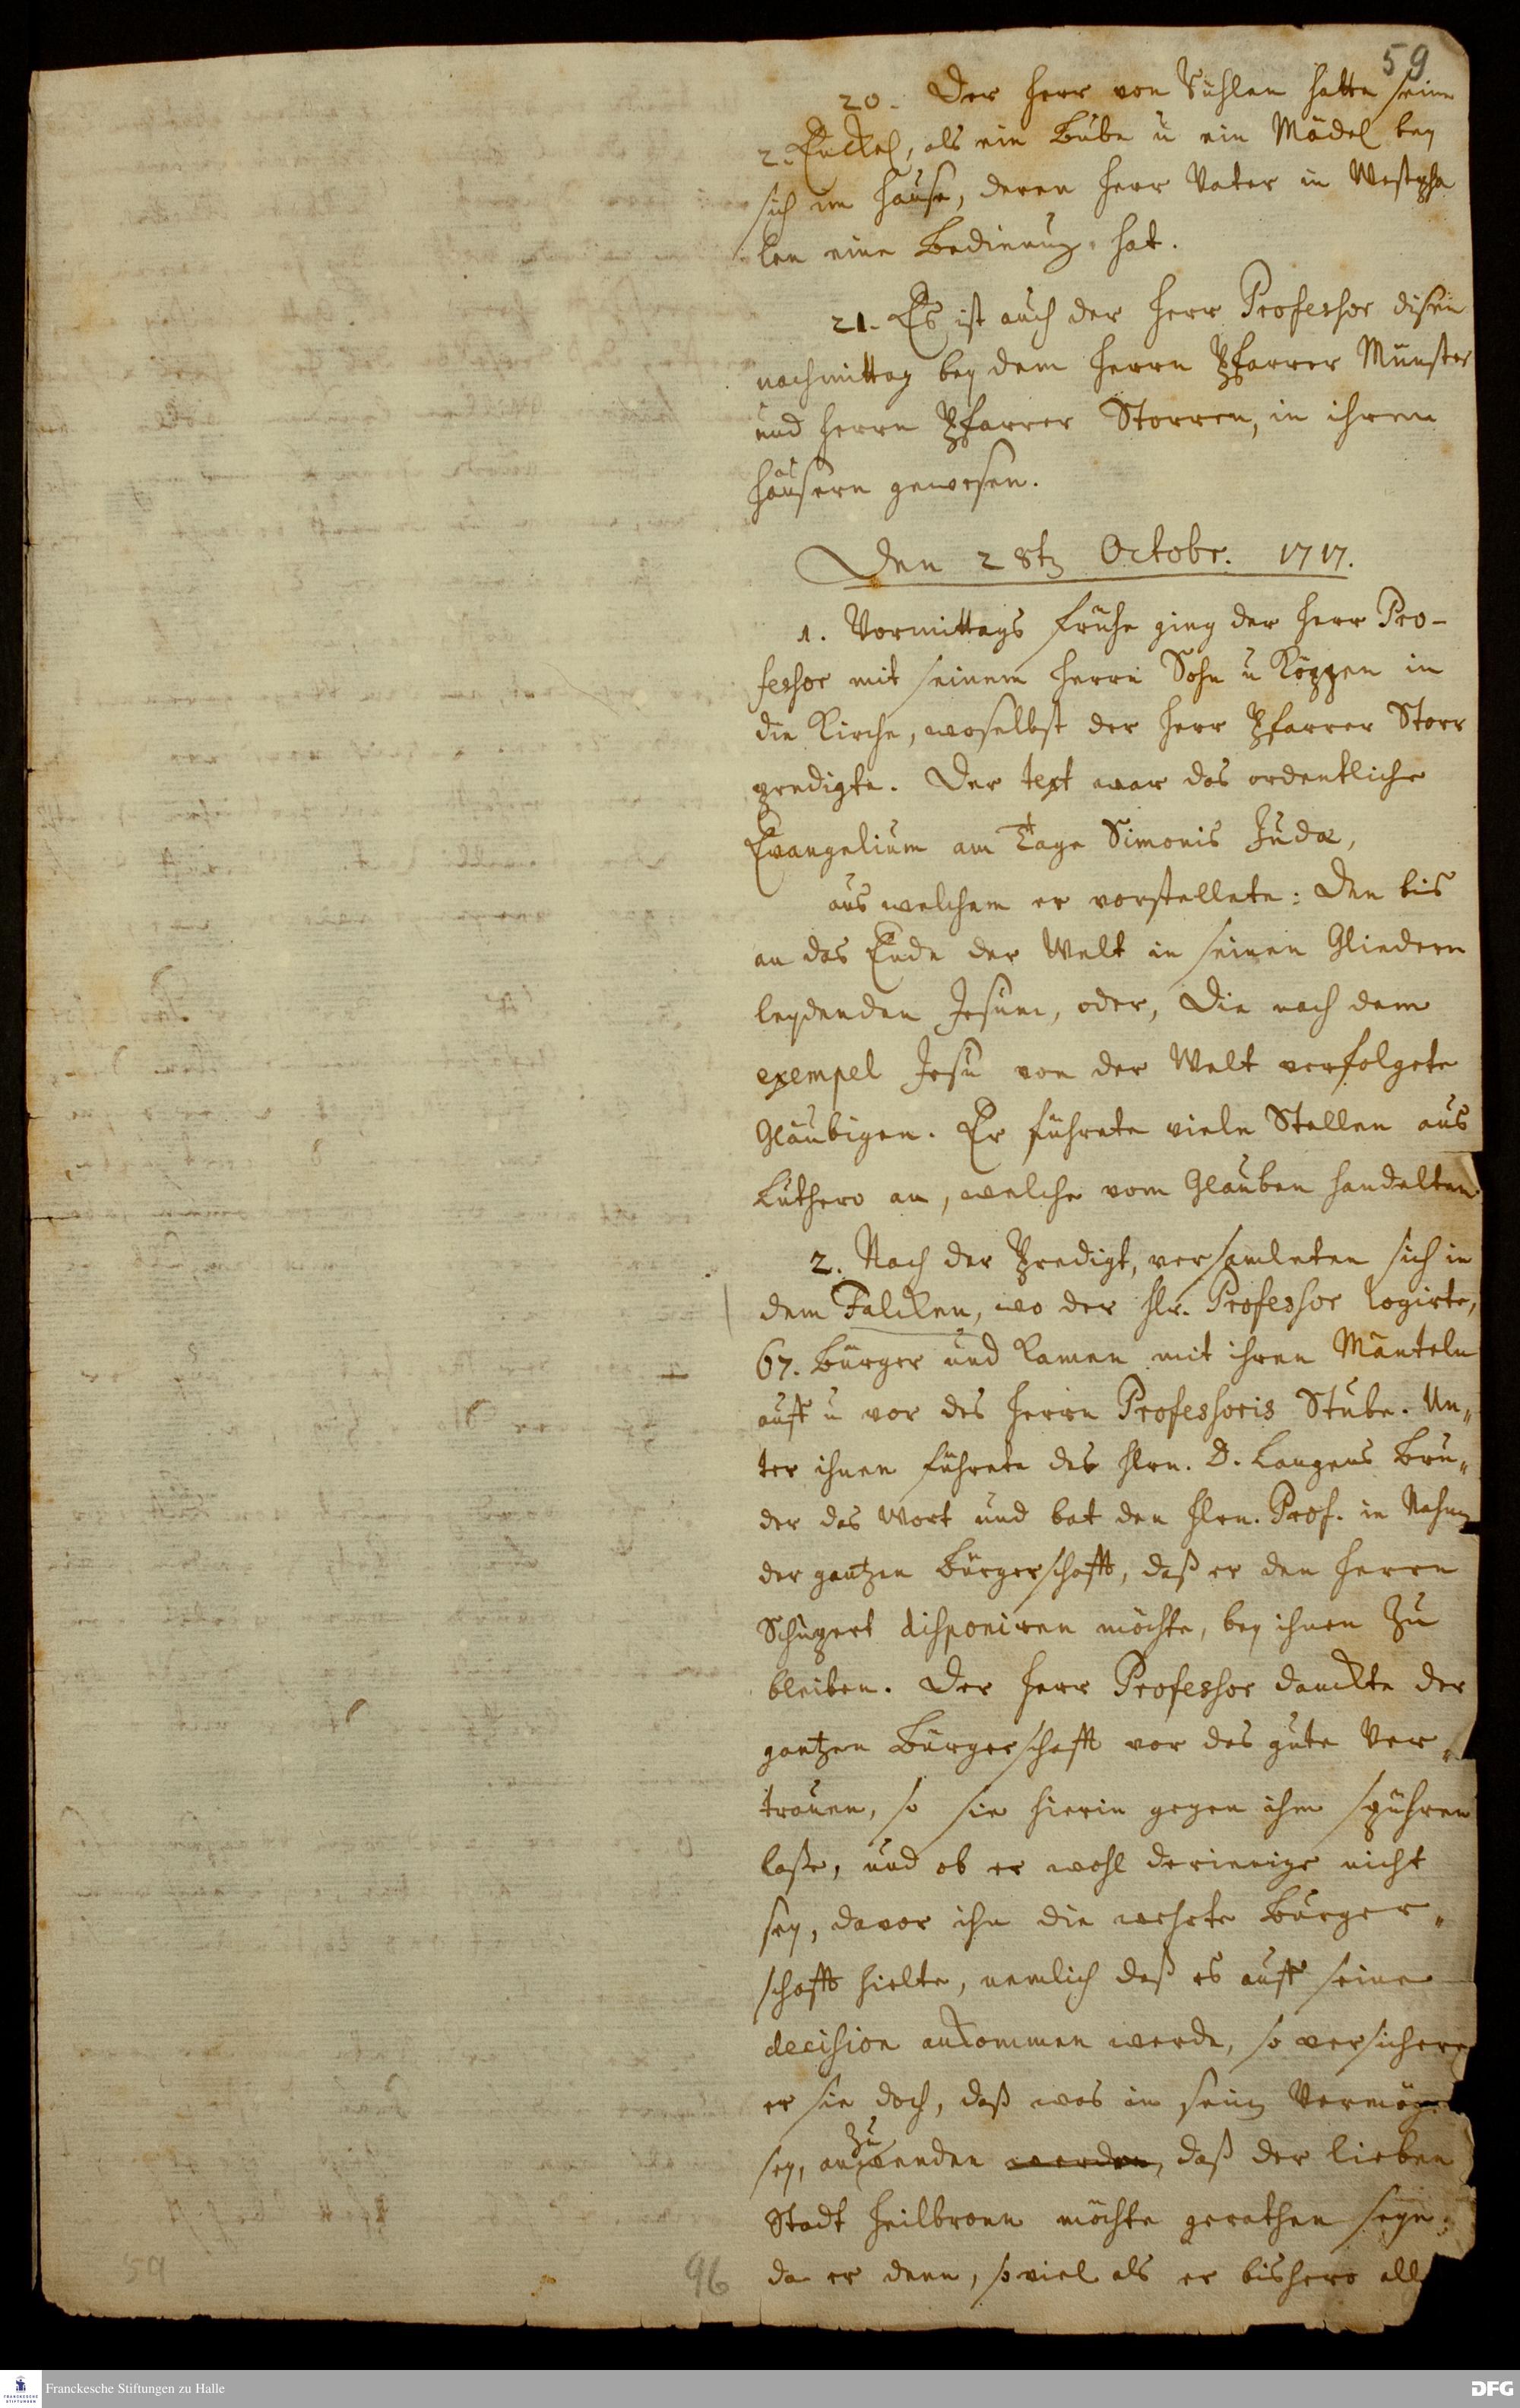 59
20. Der Herr von Rühlen hatte seine
2. Enckel, als ein Bube u ein Mädel bey
sich im Hause, deren Herr Vater in Westpha
len eine Bedienung hat.
21. Es ist auch der Herr Professor disen
nachmittag bey dem Herrn Pfarrer Münster
und Herrn Pfarrer Storren, in ihren
Häusern gewesen.
Den 28t Octobr. 1717.
1. Vormittags frühe ging der Herr Pro-
fessor mit seinem Herrn Sohn u Köppen in
die Kirche, woselbst der Herr Pfarrer Storr
predigte. Der text war das ordentliche
Evangelium am Tage Simonis Judæ,
aus welchem er vorstellete: Den bis
an das Ende der Welt in seinen Gliedern
leydenden Jesum, oder, Die nach dem
exempel Jesu von der Welt verfolgete
Gläubigen. Er führete viele Stellen aus
Luthero an, welche vom Glauben handelten
2. Nach der Predigt, versamleten sich in
dem Falcken, wo der Hr. Professor logirte,
67. Bürger und kamen mit ihren Mänteln
auff u vor des Herrn Professoris Stube. Un„
ter ihnen führete des Hrn. D. Langens Bru„
der das Wort und bat den Hrn. Prof. in Nahmen
der gantzen Bürgerschafft, daß er den Herrn
Schupert disponiren möchte, bey ihnen zu
bleiben. Der Herr Professor danckte der
gantzen Bürgerschafft vor das gute Ver„
trauen, so sie hierin gegen ihm spühren
laße, und ob er wohl derienige nicht
sey, davor ihn die wehrte Bürger„
schafft hielte, nemlich daß es auff seine
decision ankommen werde, so versichere
er sie doch, daß was in seinem Vermögen
sey, anzuwenden werden, daß der lieben
Stadt Heilbronn möchte gerathen seyn.
da er denn, so viel als er bishero all
59
96
Franckesche Stiftungen zu Halle
DFG